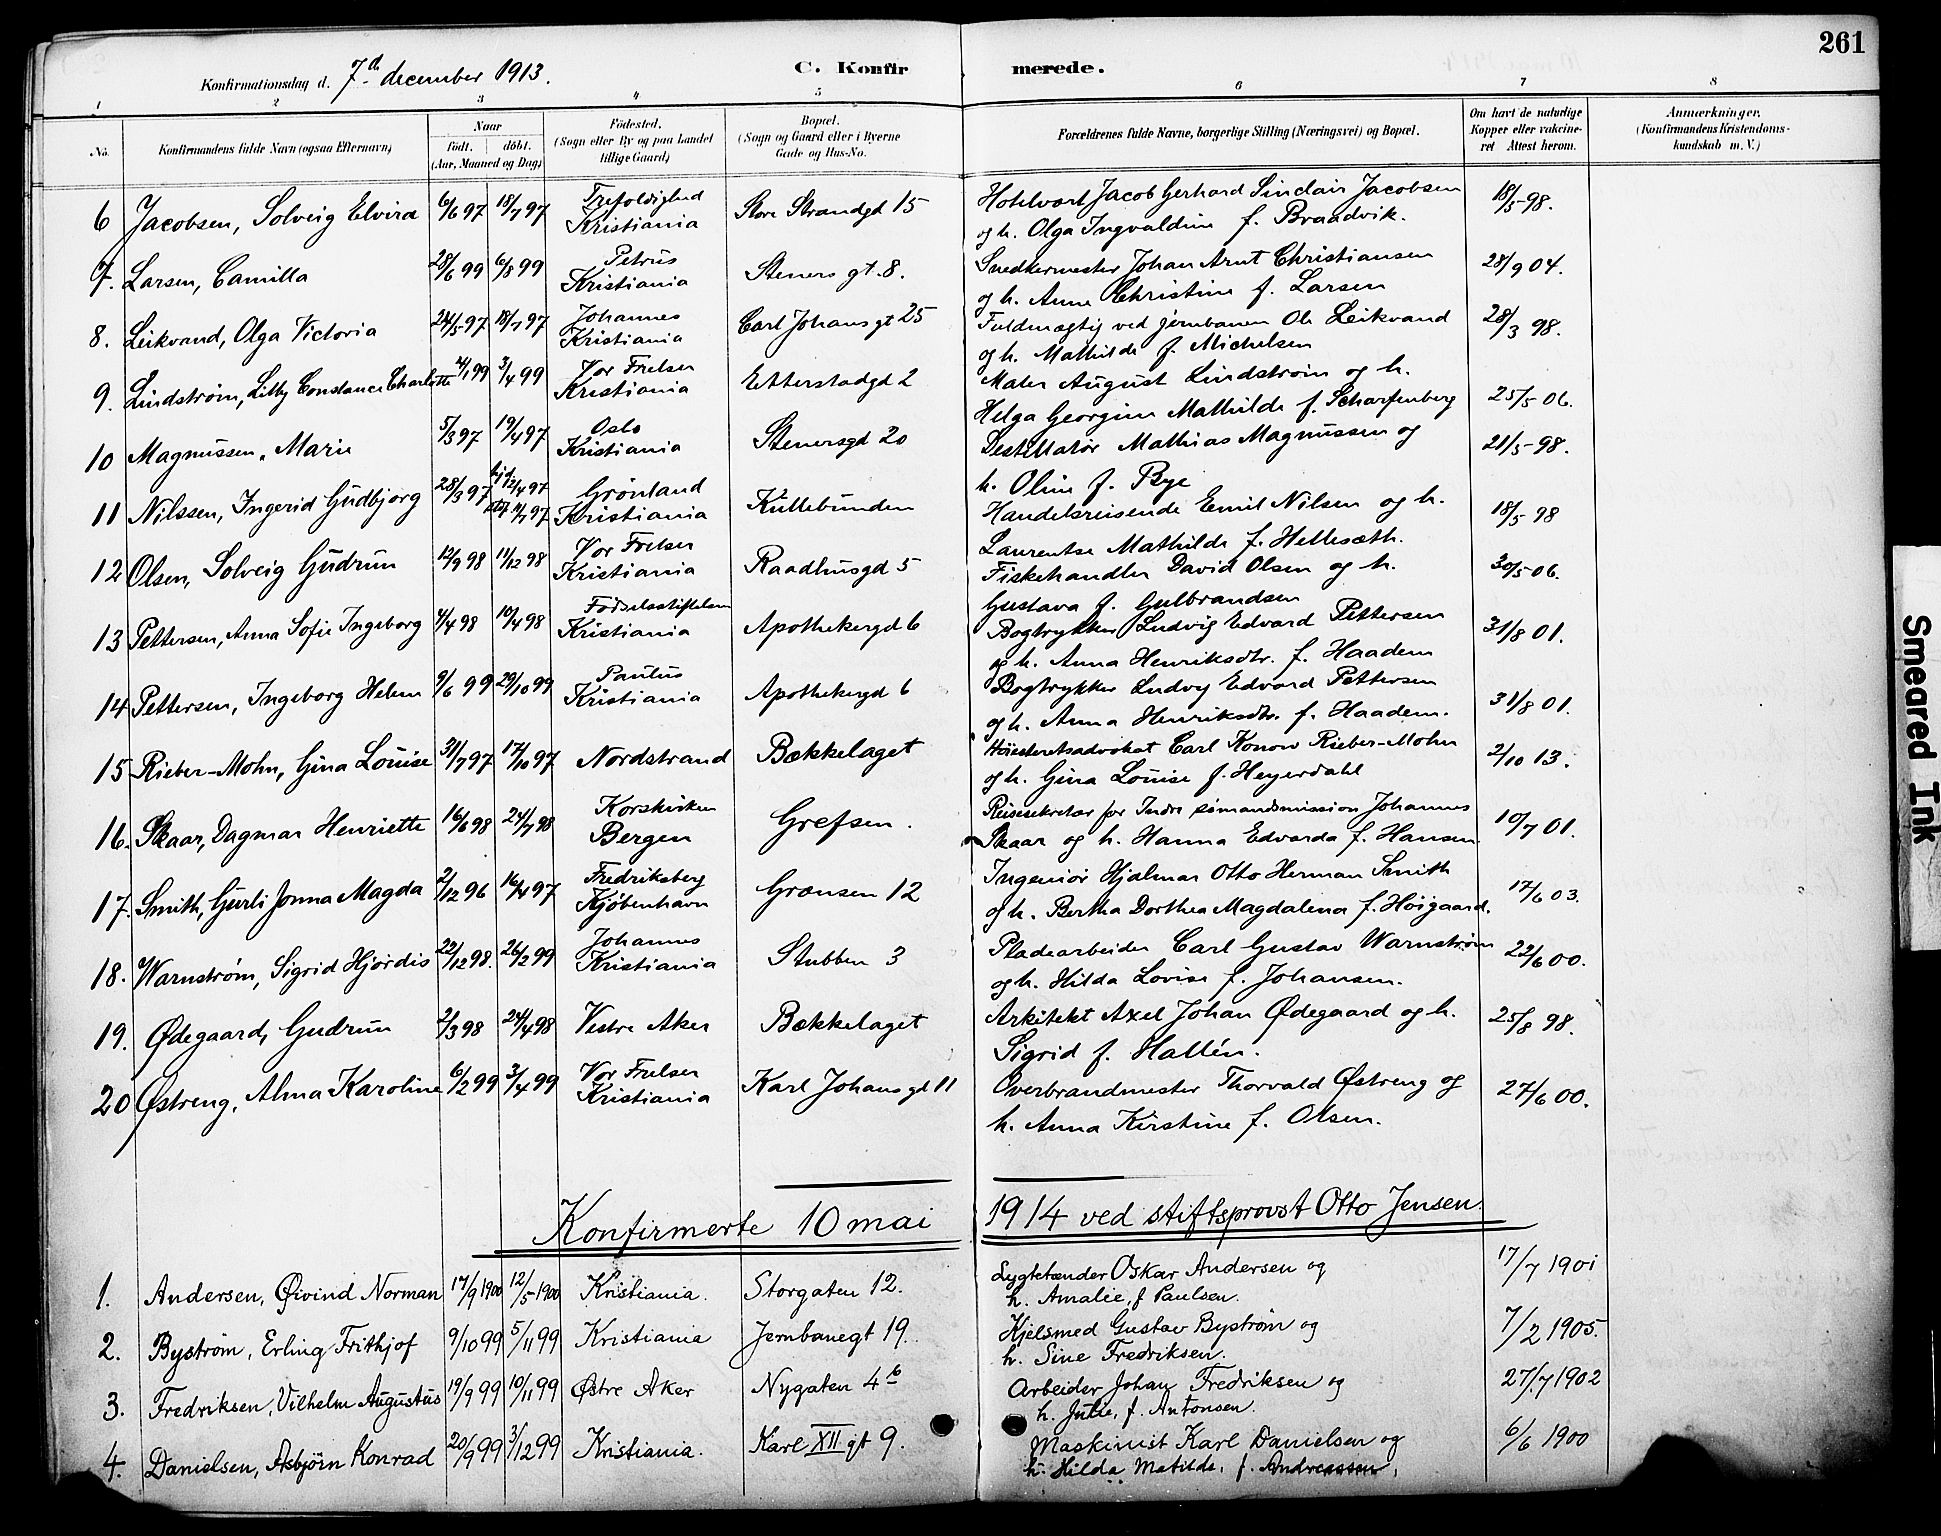 261
Konfirmationsdag d. 7de december 1913.
C. Konfirmerede.
1 2 3 4 5 6 7 8
No.
Konfirmandens fulde Navn (ogsaa Efternavn)
Naar
født. døbt.
(Aar, Maaned og Dag)
Fødested.
(Sogn eller By og paa Landet
tillige Gaard)
Bopæl.
(Sogn og Gaard eller i Byerne
Gade og Hus-No.
Forældrenes fulde Navne, borgerlige Stilling (Næringsvei) og Bopæl.
Om havt de naturlige
Kopper eller vakcine-
ret Attest herom.
Anmærkninger.
(Konfirmandens Kristendoms-
kundskab m. V.)
6 Jacobsen, Solveig Elvira 6/6 97 18/7 97 Trefoldighed Kristiania Store Strandgd 15 Hotelvært Jacob Gerhard Sinclair Jacobsen 18/5-98.
og h. Olga Ingvaldine f. Braadvik.
7. Larsen, Camilla 28/6 99 6/8 99 Petrus Kristiania Steners gt. 8. Snedkermester Johan Arnt Christiansen 28/9 04.
og h. Anne Christine f. Larsen
8. Leikvand, Olga Victoria 24/5-97 18/7 97 Johannes Kristiania Carl Johans gt 25 Fuldmægtig ved jernbanen Ole Leikvand 28/3 98.
og h. Mathilde f. Michelsen
9. Lindstrøm, Lilly Constance Charlotte 4/1 99 3/4 99 Vor Frelser Kristiania Etterstadgd 2 Maler August Lindstrøm og h. 25/5 06.
Helga Georgine Mathilde f. Scharfenberg
10 Magnussen, Marie 5/3 97 19/4 97 Oslo Kristiania Stenersgd 20 Destillatør Mathias Magnussen og 21/5-98.
h. Oline f. Bye
11 Nilssen, Ingerid Gudbjorg 28/3 97 hjd 12/4 97 stf 11/7 97 Grönland Kristiania Kullebunden Handelsreisende Emil Nilsen og h. 18/5 98
Laurentse Mathilde f. Hellesæth.
12 Olsen, Solveig Gudrun 12/9 98 11/12 98 Vor Frelser Kristiania Raadhusgd 5 Fiskehandler David Olsen og h. 30/5 06.
Gustava f. Gulbrandsen
13 Pettersen, Anna Sofie Ingeborg 4/4 98 10/4 98 Fødselsstiftelsen Kristiania Apothekergd 6 Bogtrykker Ludvig Edvard Pettersen 31/8 01.
og h. Anna Henriksdtr. f. Haadem
14 Pettersen, Ingeborg Helene 9/6 99 29/10 99 Paulus Kristiania Apothekergd 6 Bogtrykker Ludvig Edvard Pettersen 31/8 01.
og h. Anna Henriksdtr. f. Haadem.
15 Rieber-Mohn, Gina Louise 31/7 97 17/10 97 Nordstrand Bækkelaget Høiesteretsadvokat Carl Konow Rieber-Mohn 2/10 13.
og h. Gina Louise f. Heyerdahl
16. Skaar, Dagmar Henriette 16/6 98 24/7 98 Korskirken Bergen Grefsen. Reisesekretær for Indre sømandsmission Johannes 10/7 01.
Skaar og h. Hanna Edvarda f. Hansen
17. Smith, Gurli Jonna Magda 2/12 96 16/4 97 Fredriksberg Kjøbenhavn Grænsen 12 Ingeniør Hjalmar Otto Herman Smith 17/6 03.
og h. Bertha Dorthea Magdalena f. Høigaard.
18. Warnstrøm, Sigrid Hjørdis 22/12 98. 26/2 99 Johannes Kristiania Stubben 3 Pladearbeider Carl Gustav Warnstrøm 22/6 00.
og h. Hilda Lovise f. Johansen.
19. Ødegaard, Gudrun 2/3 98 24/4 98 Vestre Aker Bækkelaget Arkitekt Axel Johan Ødegaard og h. 25/8 98.
Sigrid f. Hallén.
20 Østreng, Alma Karoline 6/2 99 3/4 99 Vor Frelser Kristiania Karl Johans gd 11 Overbrandmester Thorvald Østreng og 27/6 00.
h. Anna Kirstine f. Olsen.
Konfirmerte 10 mai 1914 ved stiftsprovst Otto Jensen.
1. Andersen, Øivind Norman 17/9 1900 12/5-1900 Kristiania. Storgaten 12. Lygtetænder Oskar Andersen og 17/7 1901
h. Amalie, f Paulsen.
2. Bystrøm, Erling Frithjof 9/10 99 5/11 99 Kristiania Jernbanegt 19. Kjelsmed Gustav Bystrøm og 7/2 1905.
h. Sine Fredriksen.
3. Fredriksen, Vilhelm Augustus 19/9 99 10/11 99 Østre Aker Nygaten 4b Arbeider Johan Fredriksen og 27/7 1902
h. Julie, f. Antonsen.
4. Danielsen, Asbjørn Konrad 20/9 99 3/12 99 Kristiania. Karl XII gt 9. Maskinist Karl Danielsen og 6/6 1900
h. Hilda Matilde, f. Andreassen,
Smeared Ink